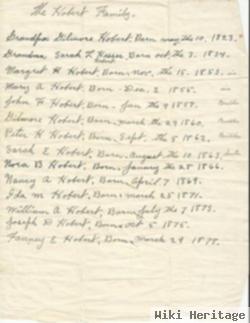 The Hobert Family.
Grandpa Gilmore Hobert, Born may the 10, 1823.
Grandma, Sarah L Hobert, Born oct the 3. 1834.
Margret H Hobert, Born, nov. the 15. 1853.
Mary A Hobert, Born - Dec. 2 1855.
John F Hobert, Born - Jan the 9 1857.
Gilmore Hobert, Born, march the 29 1860.
Peter H Hobert, Born, Sept. the 5 1862.
Sarah E Hobert, Born, August the 10. 1863,
Nora B Hobert, Born, January the 28 1866.
Nancy A Hobert, Born, April 7 1869.
Ida M Hobert, Born, march 25 1871.
William A Hobert, Born, July the 7 1873.
Joseph D Hobert, Born oct 5, 1875.
Fanney E Hobert, Born, march 29 1878.
Wiki Heritage